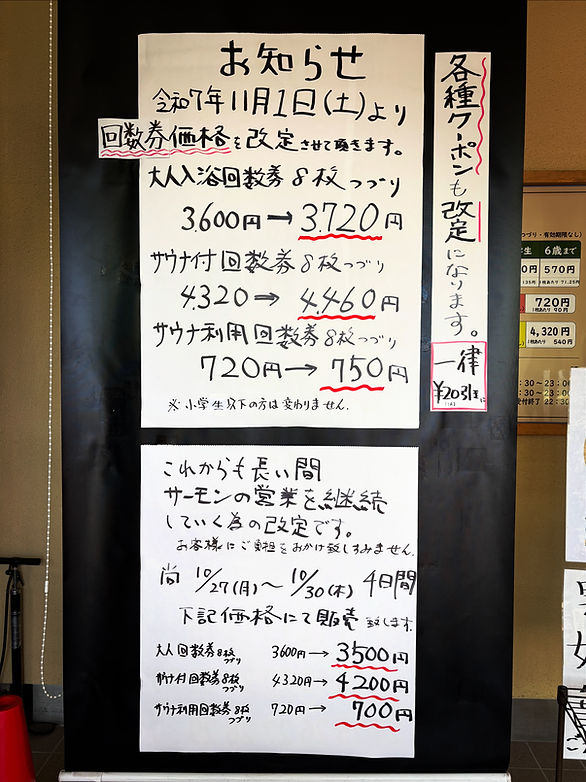 お知らせ
令和7年11月1日(土)より
回数券価格を改定させて頂きます。
大人入浴回数券8枚つづり
3.600円→3.720円
サウナ付回数券8枚つづり
4.320→4.460円
サウナ利用回数券8枚つづり
720円→750円
※小学生以下の方は変わりません。
各種クーポンも改定になります。
一律
¥20引きに
これからも長い間
サーモンの営業を継続
していく為の改定です。
お客様にご負担をおかけ致しすみません。
尚 10/27(月)〜10/30(木) 4日間
下記価格にて販売致します。
大人回数券8枚つづり 3600円→3500円
サウナ付回数券8枚つづり 4320円→4200円
サウナ利用回数券8枚つづり 720円→700円
つづり・有効期限なし)
生 6歳まで
円 570円
135円 1枚あたり 71.25円
720円
1枚あたり 90円
4,320円
1枚あたり 540円
:30〜23:00
:30〜23:00
受付終了 22:30